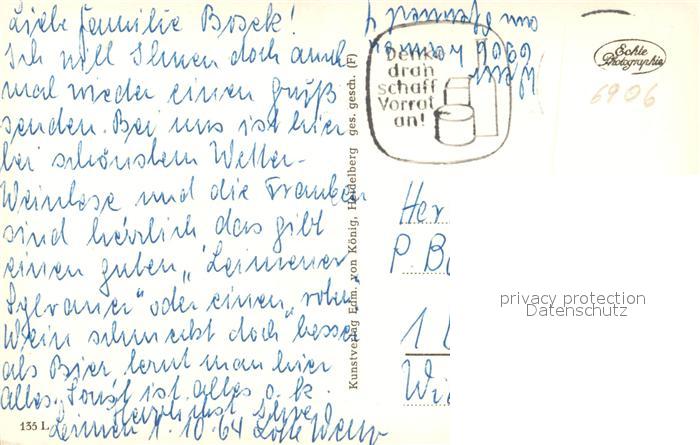 Liebe Familie Bosek!
Ich will Ihnen doch auch
mal wieder einen Gruß
senden. Bei uns ist hier
bei schönstem Wetter-
Weinlese und die Trauben
sind herrlich das gibt
einen guten „Leimener
Sylvaner" oder einen „roten"
Wein schmeckt doch besser
als Bier lernt man hier
Alles. Sonst ist alles o. k.
Herzlichst Ihre
Leimen 1. 10. 64 Lotte
135 L
Kunstverlag Edm. von König, Heidelberg ges. gesch. (F)
Denke
dran
schaff
Vorrat
an!
6909
Echte
Photographie
6906
Her
P. Bo
1
Wi
privacy protection
Datenschutz